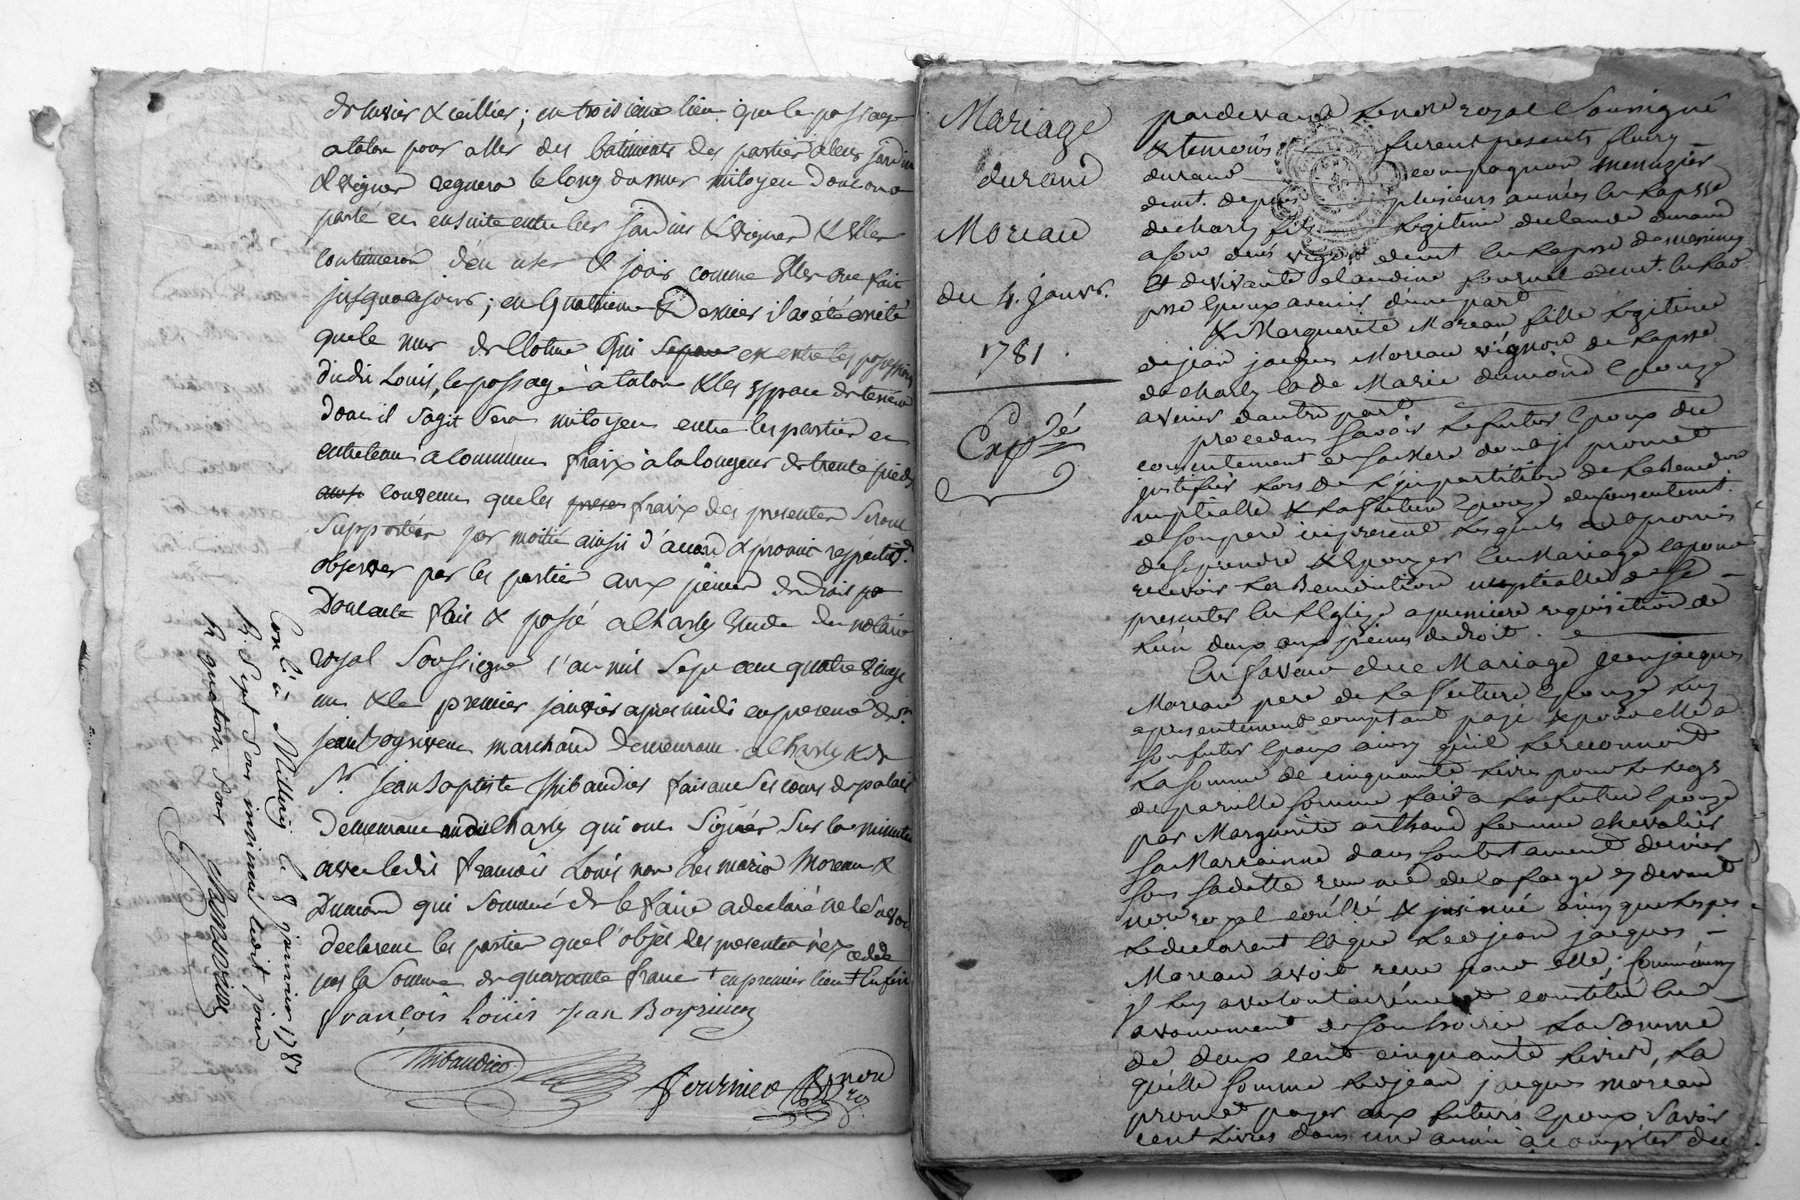 de luy et ceillier; en troisieme lieu que le passage
a talon pour aller des bâtiments des partier a leurs jardin
& vigner regnera le long du mur mitoyen dont on a
parlé et ensuite entre les jardins & vigner & Elles
continueron d'en user & jouir comme Elles ont fait
jusqu'a ce jour; en quatrieme & Dernier il a été arrêté
que le mur de Cloture qui separe est entre les possessions
dudit Louis, le passage a talon & les Espace de terrein
dont il s'agit sera mitoyen entre les partier et
entretenu a commun fraix a la longeur de trente pieds
convenu que les fraix des presenter seront
Supportés par moitié ainsi d'accord & promis respectivt.
observer par les partier aux peines de droit
Dont acte fait & passé a Charly Etude du notaire
royal Soussigné l'an mil sept cent quatre vingt
un & le premier janvier apres midi en presence de sr.
jean Boyriven marchand demeurant a Charly & de
Sr. jean Baptiste Thibaudier faisant ses cours de palais
Demeurant audit Charly qui ont Signés sur la minute
avec ledit francois Louis non les marié Moreau &
Dumond qui sommé de le faire a declaré ne le savoir
declarent les partier que l'objet des presenter n'ex cede
pas la Somme de quarante franc + en premier lieu + Enfin
François Loüis Jean Boyriven
Thibaudier
Fournier
Conlé à Millery le 8 janvier 1781
Rx Sept sous insinué huit jour
Rx quatorze sous
Mariage
durand
Moreau
du 4. Janvr.
1781.
Expé
pardevant Le nore royal Soussigné
& temoins furent presents fleury
durand compagnon menuzier
demt. depuis plusieurs années en la ppsse
de charly fils legitime de claude durand
a son deces vigon demt. en la ppsse de messimy
et de vivante claudine fournel demt. en lad
ppse Epoux avenir d'une part
& Marguerite Moreau fille legitime
de jean jacques Moreau vigneron de la ppsse
de charly & de Marie dumond Epouze
avenir dautre part
procedans savoir le futur Epoux du
consentement de sa mere dont il promet
justifier lors de l'impartition de la Benedon
nuptialle & la future Epouze du consentement
de son pere icy present lesquels ont promis
de se prendre & Epouzer en Mariage & pour
recevoir la Benediction nuptialle de se
presenter en l'Eglize a premiere requisition de
l'un deux aux peines de droit.
En faveur du Mariage jean jacques
Moreau pere de la future Epouze luy
a presentement comptant payé & pour elle a
son futur Epoux ainsy qu'il le reconnoit
La somme de cinquante livres pour le legs
de pareille somme fait a la future Epouze
par Marguerite arthaud femme chevalier
sa Marrainne dans son testament dernier
nore royal conllé & jnsinué ainsy que les pes
le declarent & que led jean jacques
Moreau avoit recu pour elle; comm'aussy
jl luy a volontairement constitué en
avancement de son hoirie La somme
de deux cent cinquante livres, La
quelle somme led jean jacques moreau
promet payer aux futurs Epoux savoir
cent livres dans une année a compter du